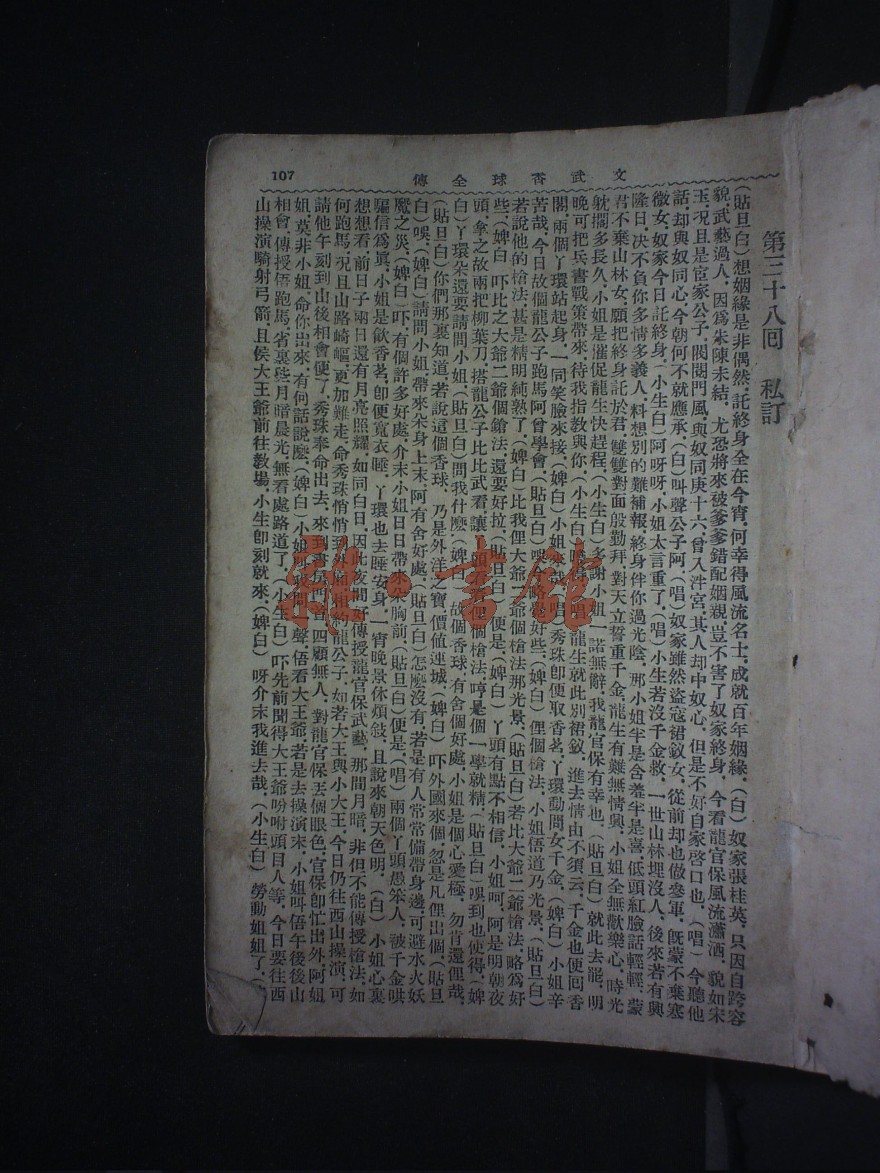 文武香球全傳
107
第三十八回　私訂
(貼旦白)想姻緣是非偶然,託終身全在今宵,何幸得風流名士,成就百年姻緣,(白)奴家張桂英,只因自跨容
貌,武藝過人,因爲朱陳未結,尤恐將來被爹爹錯配姻親,豈不害了奴家終身,今看龍官保風流瀟洒,貌如宋
玉,况且是宦家公子,閥閱門風,與奴同庚十六,曾入泮宮,其人却中奴心,但是不好自家啓口也,(唱)今聽他
話却與奴同心,今朝何不就應承,(白)叫聲公子阿,(唱)奴家雖然盜寇裙釵女,從前却也做參軍,旣蒙不棄寒
微女,奴家今日託終身,(小生白)阿呀呀,小姐太言重了,(唱)小生若沒千金救,一世山林埋沒人,後來若有興
隆日,决不負你多情多義人,料想別的難補報,終身伴你過光陰,那小姐半是含羞半是喜,低頭紅臉話輕輕,蒙
君不棄山林女,願把終身託於君,雙雙對面殷勤拜,對天立誓重千金,龍生有難無情興,小姐全無歡樂心,時光
躭擱多長久,小姐是催促龍生快趕程,(小生白)多謝小姐,諾無辭,我龍官保有幸也,(貼旦白)就此去罷,明
晚可把兵書戰策帶來,待我指教與你,(小生白)曉得,(唱)龍生就此別裙釵,進去情由不須云,千金也便回香
閣,兩個丫環站起身,一同笑臉來接,(婢白)小姐來哉,(唱)秀珠卽便取香茗,丫環動問女千金,(婢白)小姐辛
苦哉,今日故個龍公子跑馬阿曾學會,(貼旦白)嗅,略爲好些,(婢白)俚個槍法,小姐悟道乃光景,(貼旦白)
若說他的槍法,甚是精明純熟了,(婢白)比我俚大爺二爺個槍法那光景,(貼旦白)若比大爺二爺槍法,略爲好
些,(婢白)吓比之大爺二爺個鎗法,還要好拉,(貼旦白)便是,(婢白)丫頭有點不相信,小姐呵,阿是明朝夜
頭,拿之故兩把柳葉刀,搭龍公子比比武看,讓丫頭看看俚個槍法,哼是個一學就精,(貼旦白)嗅到也使得,(婢
白)丫環朵還要請問小姐,(貼旦白)問我什麽,(婢白)故個香球,有舍個好處,小姐是個心愛極,勿肯還俚哉,
(貼旦白)你們那裏知道,若說這個香球,乃是外洋之寶,價值連城,(婢白)吓外國來個,忽是凡俚出個,(貼旦
白)嗅,(婢白)請問小姐,帶來朵身上末,阿有舍好處,(貼旦白)怎麽沒有,若是有人常常備帶身邊,可避水火妖
魔之災,(婢白)吓,有個許多好處,介末小姐日日帶來朵胸前,(貼旦白)便是,(唱)兩個丫頭愚笨人,被千金哄
騙信爲眞,小姐是飲香茗,卽便寬衣睡,丫環也去睡安身,一宵晚景休煩敍,且說來朝天色明,(白)小姐心裏
想想看,前日子兩日還有月亮照耀,如同白日,因此夜間好傳授龍官保武藝,那間月暗,非但不能傳授槍法,如
何跑馬,况且山路崎嶇,更加難走,命秀珠悄悄到外面相約龍公子,如若大王與小大王,今日仍往西山操演,可
請他午刻到山後相會便了,秀珠奉命出去,來到書房門首,四顧無人,對龍官保丟個眼色,官保卽忙出外,阿姐
姐,莫非小姐,命你出來,有何話說麽,(婢白)小姐叫我問一聲,悟看大王爺,若是去操演末,小姐叫悟午後後山
相會,傳授悟跑馬,省裏些月暗晨光,無看處路道了,(小生白)吓先前聞得大王爺吩咐頭目人等,今日要往西
山操演騎射弓箭,且俟大王爺前往敎場,小生卽刻就來,(婢白)呀介末我進去哉,(小生白)勞動姐姐了,